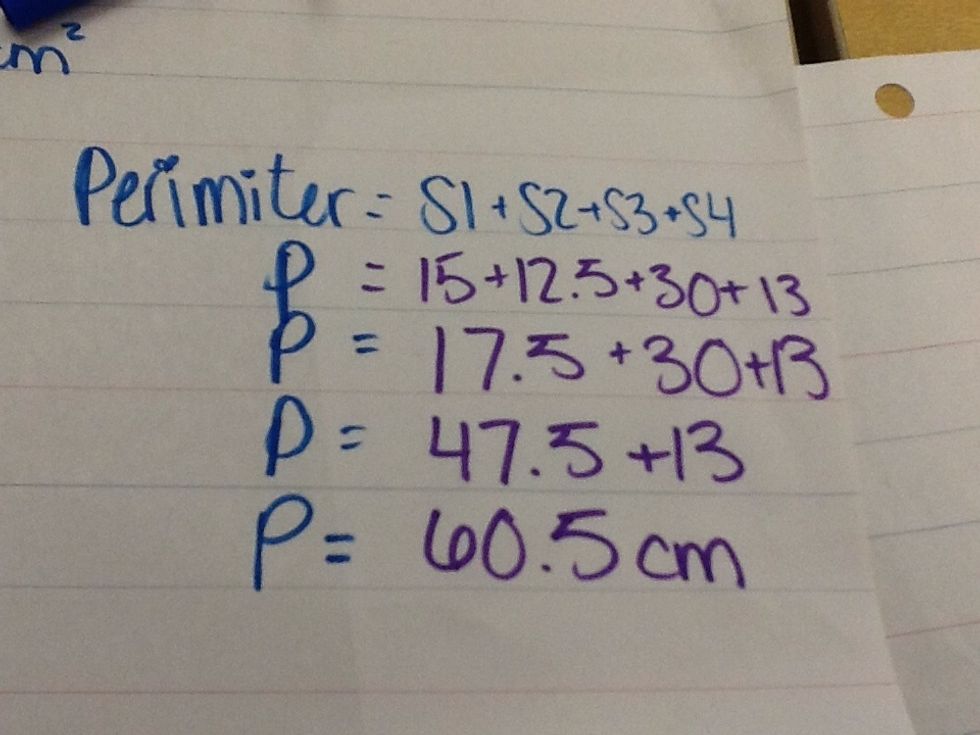 cm²
Perimiter = S1+S2+S3+S4
P = 15+12.5+30+13
P = 17.5+30+13
P = 47.5+13
P = 60.5cm